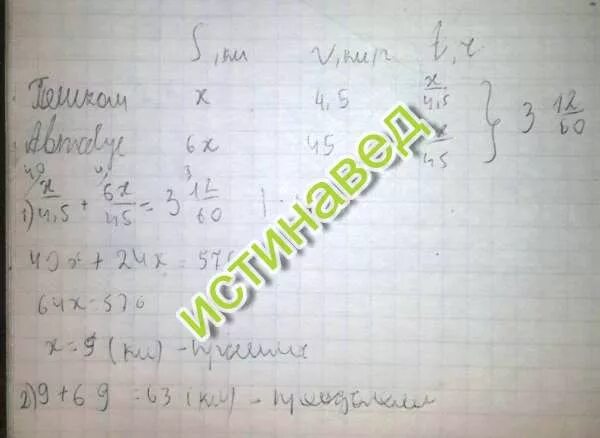 S, км v, км/ч t, ч
Пешком x 4,5 x/4,5
Автобус 6x 45 x/45 } 3 12/60
40 4
1) x/4,5 + 6x/45 = 3 12/60 |
40x + 24x = 576
64x = 576
x = 9 (км) - прошли
2) 9 + 6 9 = 63 (км) -
ИСТИНАВЕД